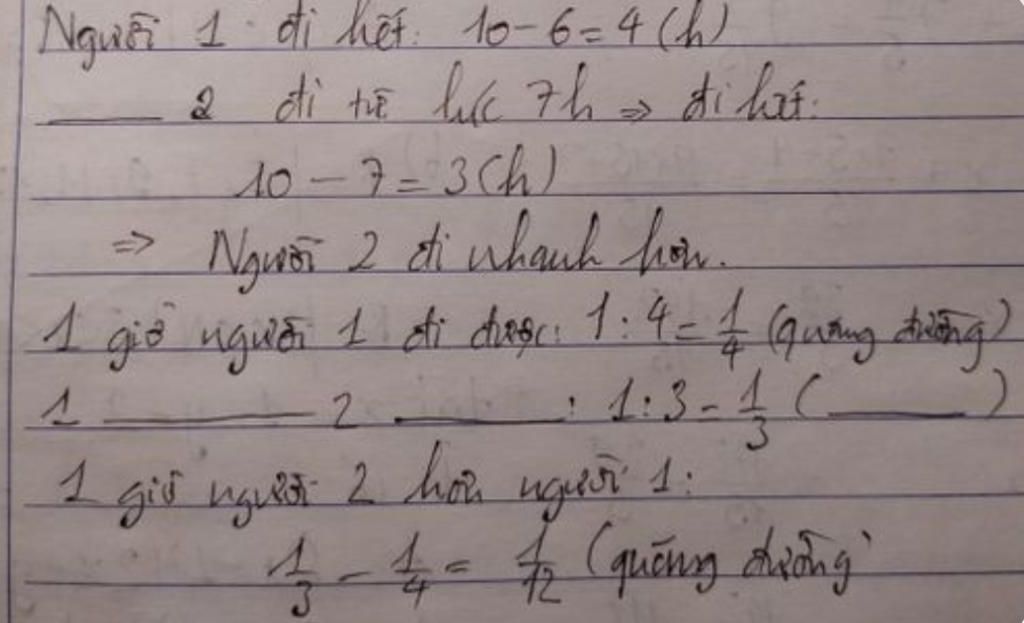 Người 1 đi hết: 10 - 6 = 4 (h)
____ 2 đi từ lúc 7h ⇒ đi hết:
10 - 7 = 3 (h)
⇒ Người 2 đi nhanh hơn.
1 giờ người 1 đi được: 1 : 4 = 1/4 (quãng đường)
1 ____ 2 ____ : 1 : 3 = 1/3 (____)
1 giờ người 2 hơn người 1:
1/3 - 1/4 = 1/12 (quãng đường)